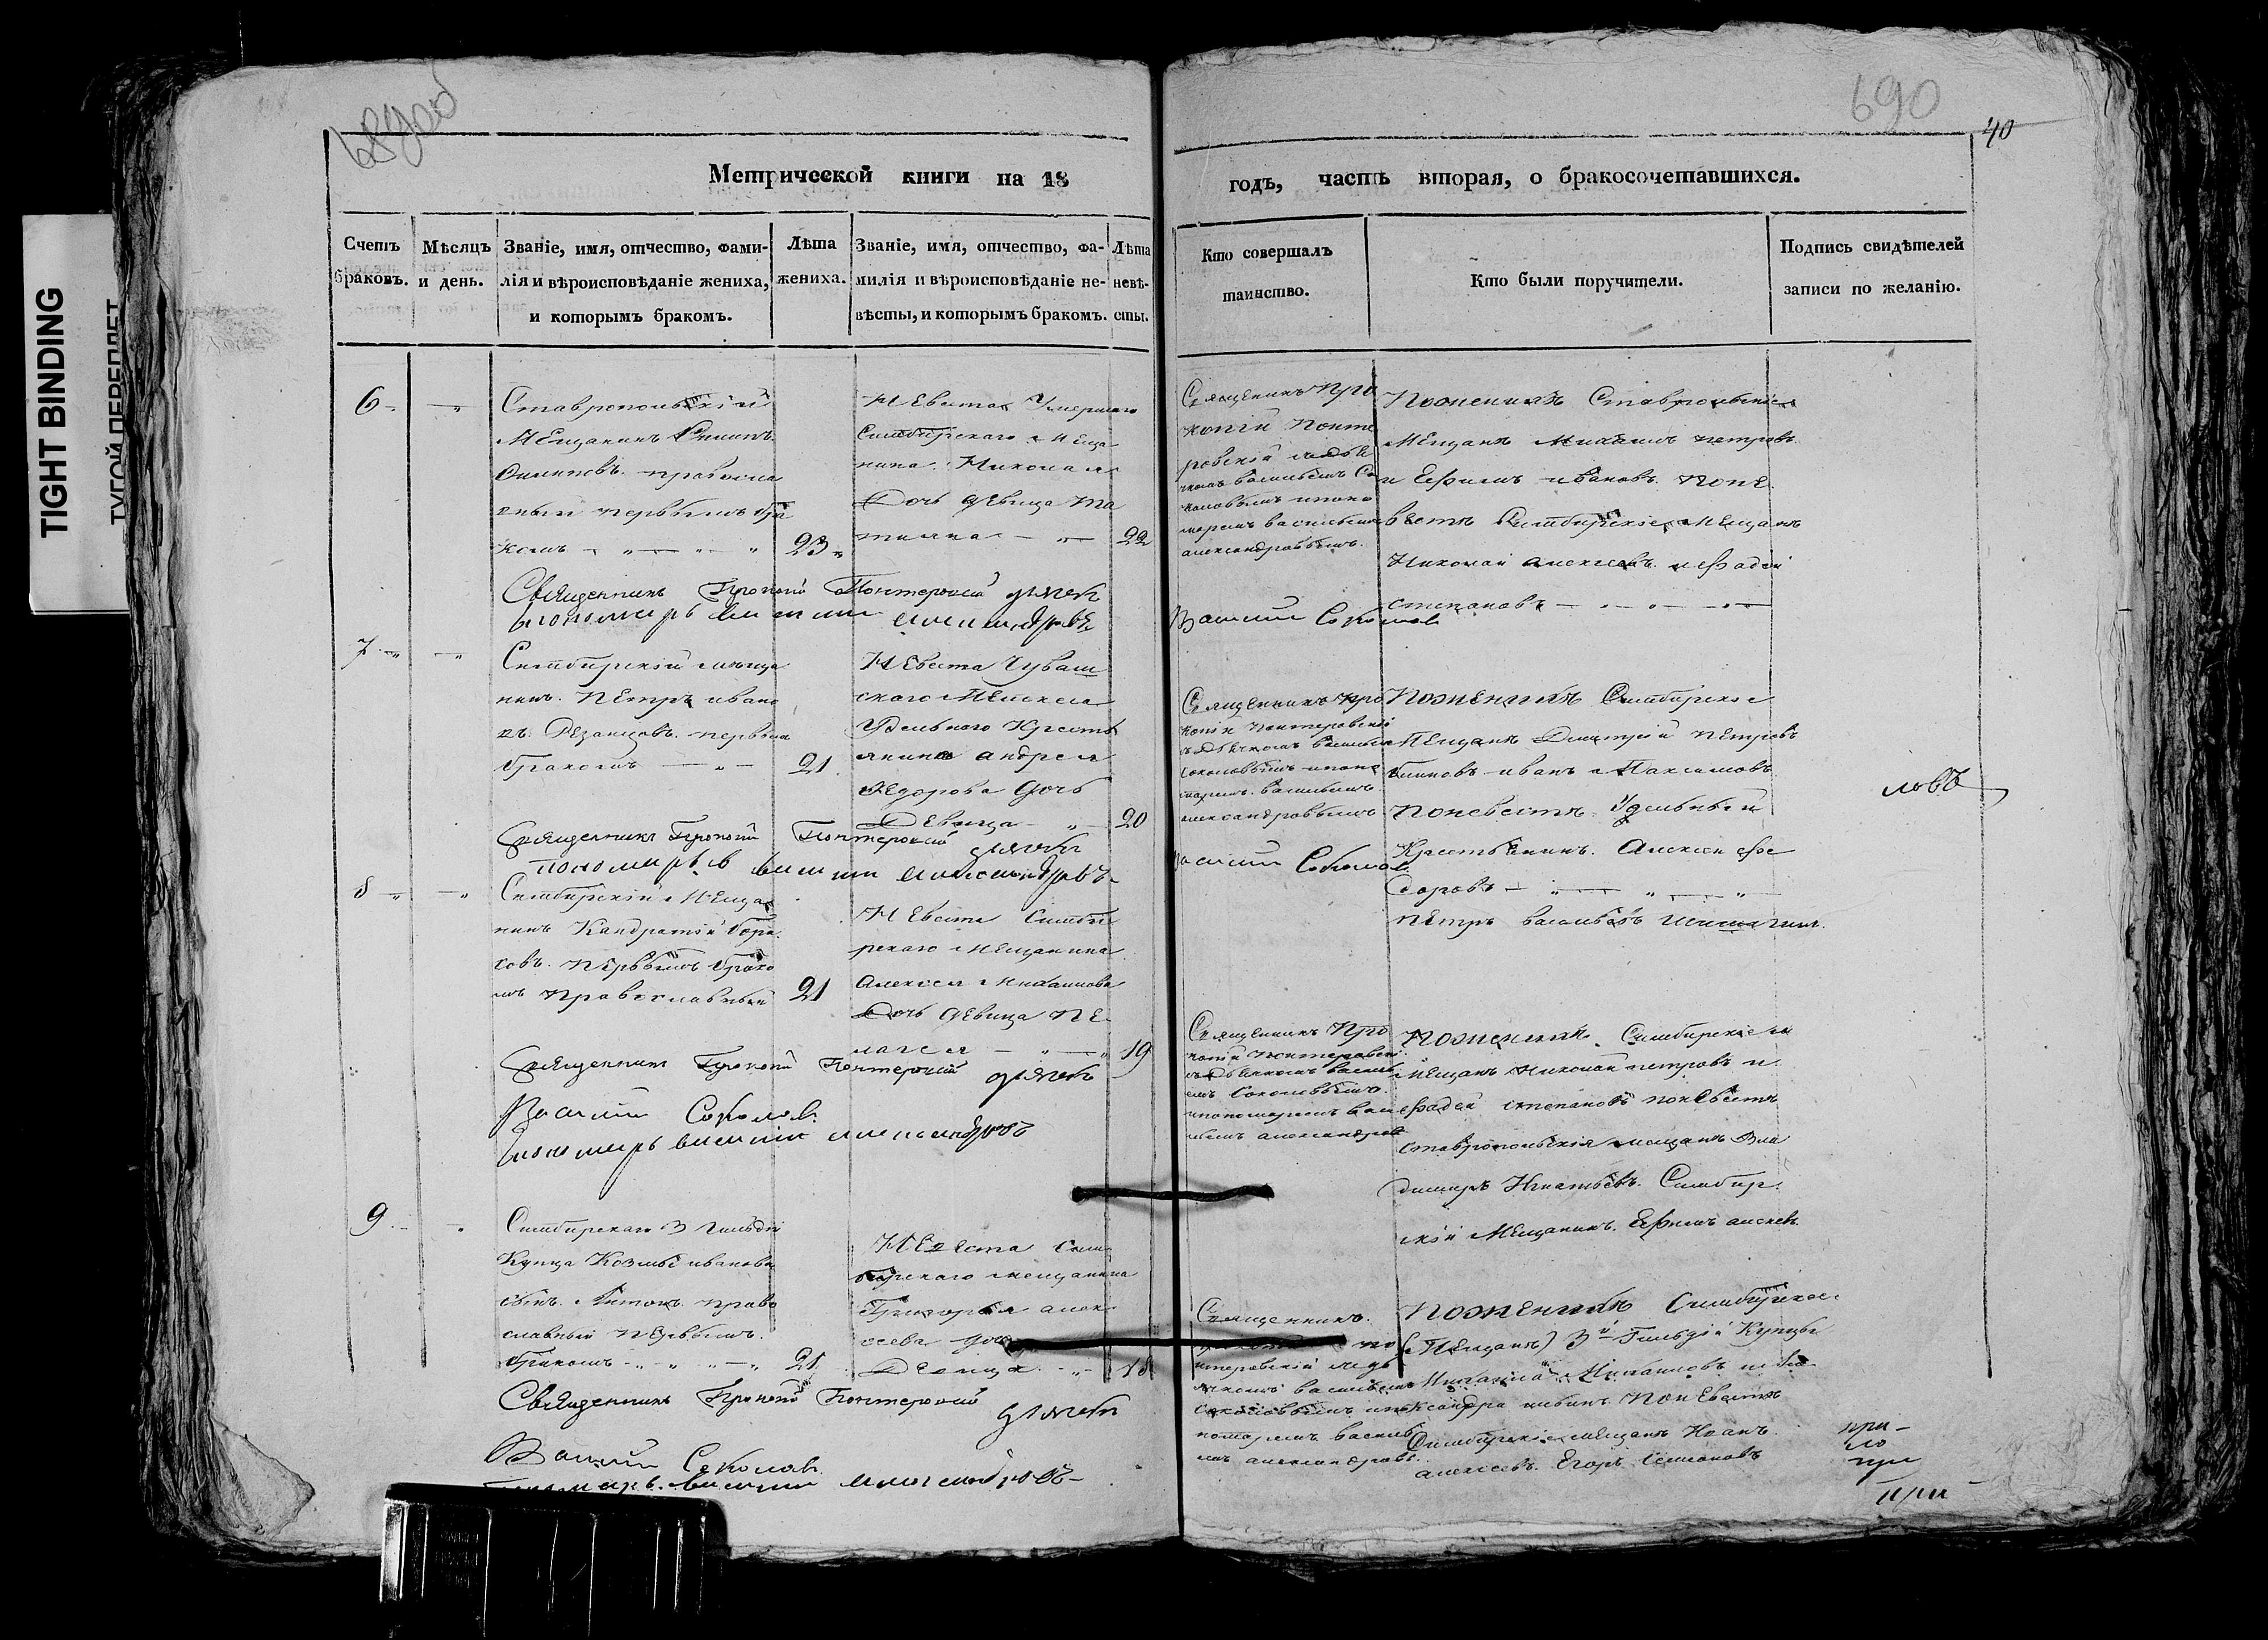 TIGHT BINDING
ТУГОЙ ПЕРЕПЛЕТ
689об
690
40
Метрической книги на 18
годъ, часть вторая, о бракосочетавшихся.
Счетъ браковъ.
Мѣсяцъ и день.
Званіе, имя, отчество, фами-
лія и вѣроисповѣданіе жениха,
и которымъ бракомъ.
Лѣта
жениха.
Званіе, имя, отчество, фа-
милія и вѣроисповѣданіе не-
вѣсты, и которымъ бракомъ.
Лѣта
невѣ-
сты.
Кто совершалъ
таинство.
Кто были поручители.
Подпись свидѣтелей
записи по желанію.
6
Ставропольскій
Мещанинъ Филипъ
Филиповъ. православ
ный первымъ бра
комъ 23
Невеста Умершаго
Симбирскаго Меща
нина Николая
Дочь девица Та
тияна 22
Священникъ Про
копій Понте
ровскій съ дья
чкомъ васильемъ Со
коловымъ ипоно
маремъ васильемъ
александровымъ.
Поженихѣ Ставропольскіе
Мещане Михаилъ петровъ
и Ефимъ ивановъ. поне
вестѣ Симбирскіе Мещане
Николай алексеевъ. ифадей
степановъ
Священникъ Прокопій Понтеровскій дьячекъ
Василий Соколов
Пономарь василии александровъ
7
Симбирскій меща
нинъ. Петръ ивано
въ. Резанцовъ. первым
бракомъ 21
Невеста Чуваш
скаго
Удельного Кресть
янина андрея
Федорова дочь
Девица 20
Священникъ Про
копій понтеровскій
съ дьячкомъ васильем
соколовымъ ипоно
маремъ. васильемъ
александровымъ
Поженихѣ Симбирскіе
Мещане Дмитрій Петровъ
иванъ Максимовъ
поневестѣ. Удельный
Крестьянинъ. Алексеи Фе
доровъ
Петръ васильевъ
Священникъ Прокопій Понтеровскій дьячекъ
василий Соколов
ловъ
пономарь василии александровъ
8
Симбирскій Меща
нинъ Кандратій Бори
совъ. первымъ брако
мъ православный 21
Невеста Симби
рскаго Мещанина
Алексея Михаилова
Дочь девица Пе
лагея 19
Священникъ Про
копій понтеровскі
съ дьячкомъ василь
емъ Соколовымъ.
ипономаремъ васи
льемъ александров
Поженихѣ. Симбирскіе
Мещане Николай петровъ и
фадей степановъ поневестѣ
ставропольскія мещане Вла
димиръ Игнатьевъ. Симбир
скій Мещанинъ. Ефимъ алексеев
Священникъ Прокопій Понтеровскій дьячекъ
Василий Соколов
Пономарь василии александровъ
9
Симбирскаго 3 гильдіи
Купца Козмы иванова
сынъ. Антонъ. право
славный первымъ.
бракомъ 21
Невеста Сим
бирскаго мещанина
Григорья алек
сеева дочь
Девица 18
Священникъ.
по
нтеровскій съ дь
ячкомъ васильемъ
соколовымъ ипо
номаремъ василь
емъ александровъ
Поженихѣ Симбирскіе
(Мещане) 3й Гильдіи Купцы
Михаиловъ
поневестѣ
Симбирскіе мещане Иванъ
алексеевъ. Егоръ Семеновъ
Священникъ Прокопій Понтеровскій дьячекъ
Василий Соколов
Пономарь василии александровъ